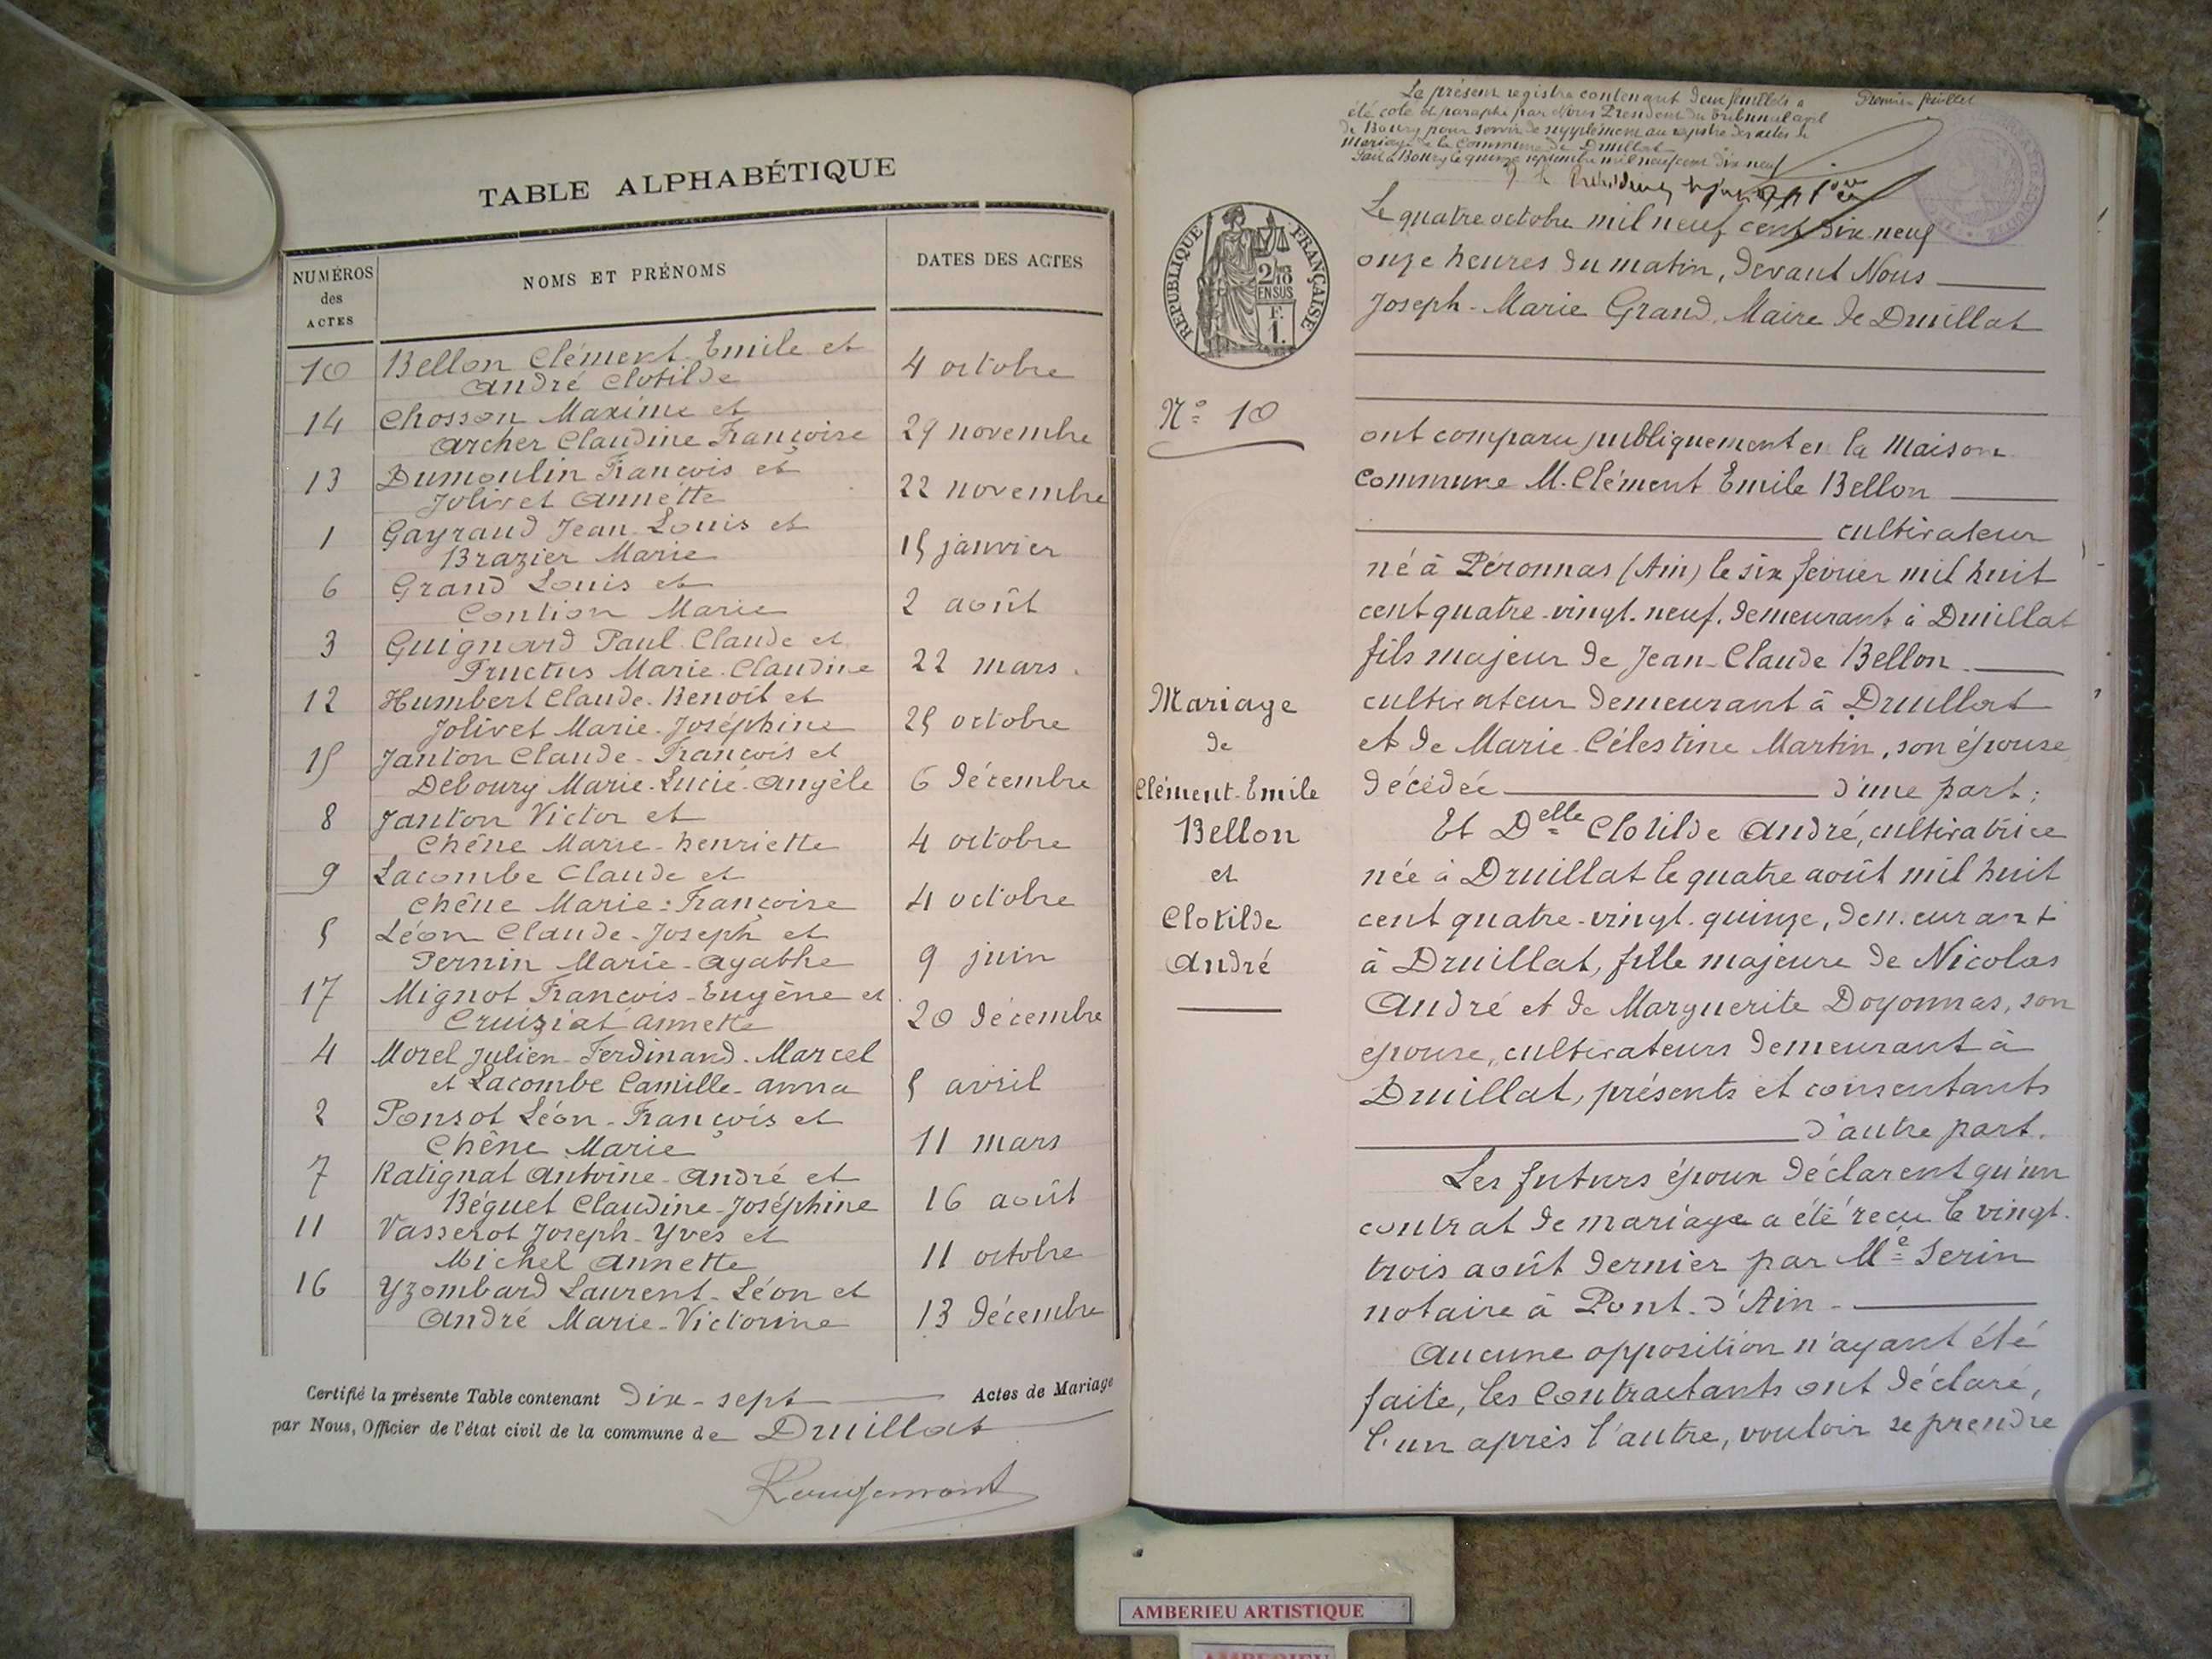 TABLE ALPHABÉTIQUE
NUMÉROS
des
ACTES
NOMS ET PRÉNOMS
DATES DES ACTES
10 Bellon Clément Emile et
André Clotilde
4 octobre
14 Chosson Maxime et
Archer Claudine Françoise
29 novembre
13 Dumoulin François et
Jolivet Annette
22 novembre
1 Gayraud Jean-Louis et
Brazier Marie
15 janvier
6 Grand Louis et
Contion Marie
2 août
3 Guignard Paul Claude et
Fructus Marie-Claudine
22 mars
12 Humbert Claude-Benoit et
Jolivet Marie-Joséphine
25 octobre
15 Janton Claude-François et
Deboury Marie-Lucie-Angèle
6 décembre
8 Janton Victor et
Chêne Marie-henriette
4 octobre
9 Lacombe Claude et
Chêne Marie-Françoise
4 octobre
5 Léon Claude-Joseph et
Pernin Marie-Agathe
9 juin
17 Mignot François-Eugène et
Cruiziat Annette
20 décembre
4 Morel Julien-Ferdinand-Marcel
et Lacombe Camille-Anna
5 avril
2 Ponsot Léon-François et
Chêne Marie
11 mars
7 Ratignat Antoine-André et
Béguet Claudine-Joséphine
16 août
11 Vasserot Joseph-Yves et
Michel Annette
11 octobre
16 Yzombard Laurent-Léon et
André Marie-Victorine
13 décembre
Certifié la présente Table contenant dix-sept Actes de Mariage
par Nous, Officier de l'état civil de la commune de Druillat
Premier feuillet
Le présent registre contenant deux feuillets a
été coté et paraphé par Nous Président du Tribunal civil
de Bourg pour servir de supplément au registre des actes de
mariage de la Commune de Druillat
Fait à Bourg le quinze septembre mil neuf cent dix neuf
RÉPUBLIQUE FRANÇAISE
2/10
EN SUS
F.
1.
Le quatre octobre mil neuf cent dix-neuf
onze heures du matin, devant Nous
Joseph-Marie Grand, Maire de Druillat
N° 10
ont comparu publiquement en la Maison
commune M. Clément Emile Bellon
cultivateur
né à Péronnas (Ain) le six février mil huit
cent quatre-vingt-neuf, demeurant à Druillat
fils majeur de Jean-Claude Bellon
cultivateur demeurant à Druillat
et de Marie-Célestine Martin, son épouse
décédée d'une part;
Mariage
de
Clément-Emile
Bellon
et
Clotilde
André
Et Delle Clotilde André, cultivatrice
née à Druillat le quatre août mil huit
cent quatre-vingt-quinze, demeurant
à Druillat, fille majeure de Nicolas
André et de Marguerite Doyonnas, son
épouse, cultivateurs demeurant à
Druillat, présents et consentants
d'autre part.
Les futurs époux déclarent qu'un
contrat de mariage a été reçu le vingt-
trois août dernier par Me Serin
notaire à Pont-d'Ain
Aucune opposition n'ayant été
faite, les Contractants ont déclaré,
l'un après l'autre, vouloir se prendre
AMBERIEU ARTISTIQUE
AMBERIEU